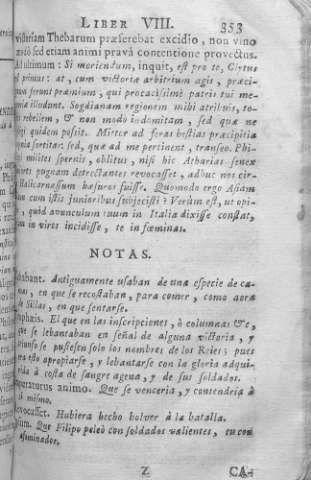 LIBER VIII. 353
victoriam Thebarum præferebat excidio, non vino
modo sed etiam animi pravâ contentione provectus.
Ad ultimum: Si moriendum, inquit, est pro te, Clytus
est primus: at, cum victoriæ arbitrium agis, præci-
puum ferunt præmium, qui procacissimè patris tui me-
moriæ illudunt. Sogdianam regionem mihi attribuis, to-
ties rebellem, & non modo indomitam, sed quæ ne
subigi quidem possit. Mittor ad feras bestias præcipitia
ingenia sortitas. sed, quæ ad me pertinent, transeo. Phi-
lippi milites spernis, oblitus, nisi hic Atharias senex
juniores pugnam detrectantes revocasset, adhuc nos cir-
ca Halicarnassum hæsuros fuisse. Quomodo ergo Asiam
etiam cum istis junioribus subjecisti? Verum est, ut opi-
nor, quod avunculum tuum in Italia dixisse constat,
ipsum in viros incidisse, te in fœminas.
NOTAS.
Antiguamente usaban de una especie de ca-
mas, en que se recostaban, para comer, como aora
de sillas, en que se sentarse.
El que en las inscripciones, ò columnas &c,
que se levantaban en señal de alguna victoria, y
se pusiesen solo los nombres de los Reies; pues
era esto apropiarse, y levantarse con la gloria adqui-
rida à costa de sangre agena, y de sus soldados.
animo. Que se venceria, y contendria à
si mismo.
revocasset. Hubiera hecho bolver à la batalla.
Que Filipo peleò con soldados valientes, tu con
afeminados.
Z CA-